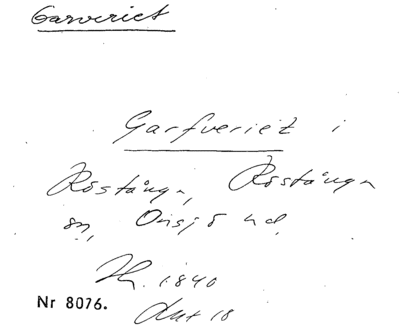 Garveriet
Garfveriet i
Röstånga, Röstånga
sn, Onsjö hd.
Th. 1840
Nr 8076.